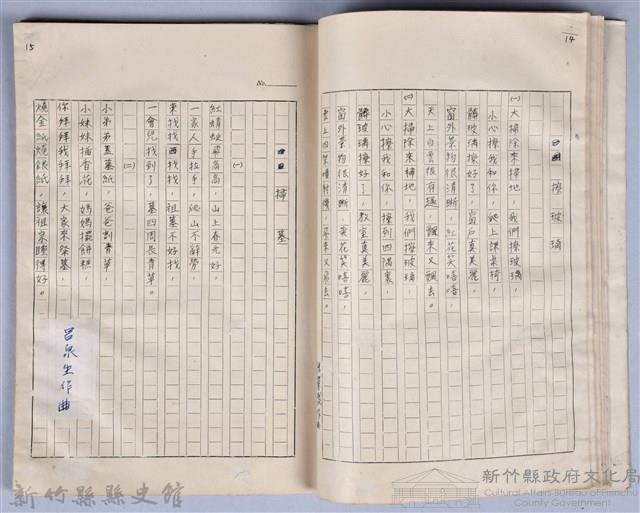 14
擦玻璃
(一)大掃除來掃地，我們擦玻璃，
小心擦我和你，爬上課桌椅，
髒玻璃擦好了，窗戶真美麗，
窗外景物很清晰，紅花笑嘻嘻，
天上白雲很有趣，飄來又飄去。
(二)大掃除來掃地，我們擦玻璃，
小心擦我和你，擦到四隅裏，
髒玻璃擦好了，教室真美麗，
窗外景物很清晰，
15
No.
掃墓
(一)
紅蜻蜓飛高高，山上春光好，
一家人手拉手，爬山不辭勞，
東找找西找找，祖墓不好找，
一會兒找到了，墓四周長青草。
(二)
小弟弟蓋墓紙，爸爸割青草，
小妹妹插香花，媽媽擺餅糕，
你拜拜我拜拜，大家來祭墓，
燒金紙燒銀紙，讓祖宗睡得好。
呂泉生作曲
新竹縣縣史館
新竹縣政府文化局
Cultural Affairs Bureau of Hsinchu
County Government